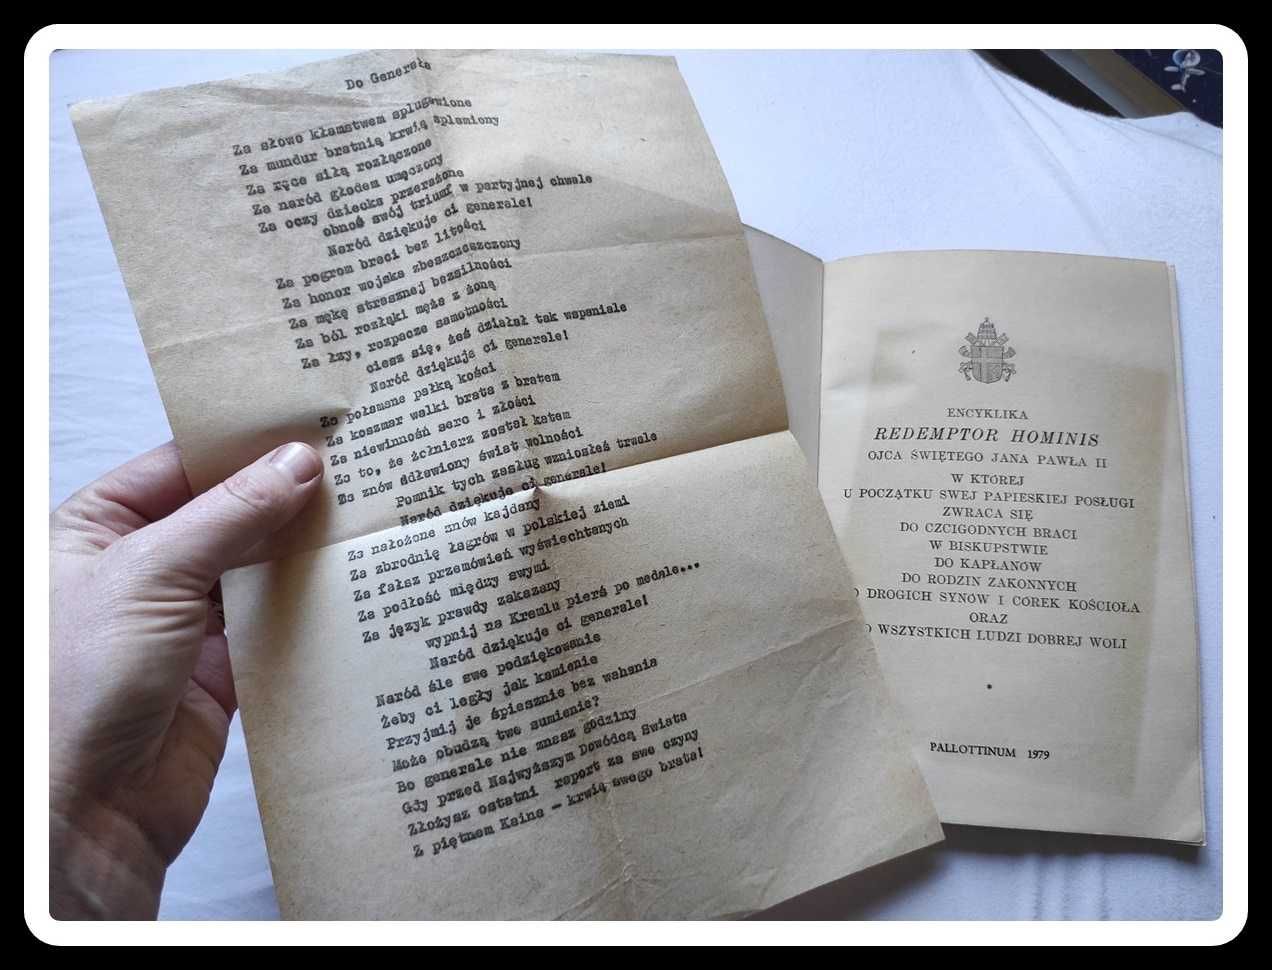 Do Generała
Za słowo kłamstwem splugawione
Za mundur bratnią krwią splamiony
Za ręce siłą rozłączone
Za naród głodem umęczony
Za oczy dziecka przerażone
obnoś swój triumf w partyjnej chwale
Naród dziękuje ci generale!
Za pogrom braci bez litości
Za honor wojska zbeszczeszczony
Za mękę strasznej bezsilności
Za ból rozłąki męża z żoną
Za łzy, rozpacze samotności
ciesz się, żeś działał tak wspaniale
Naród dziękuje ci generale!
Za połamane pałką kości
Za koszmar walki brata z bratem
Za niewinność serc i złości
Za to, że żołnierz został katem
Za znów zdławiony świat wolności
Pomnik tych zasług wzniosłeś trwale
Naród dziękuje ci generale!
Za nałożone znów kajdany
Za zbrodnię łagrów w polskiej ziemi
Za fałsz przemówień wyświechtanych
Za podłość między swymi
Za język prawdy zakazany
wypnij na Kremlu pierś po medale...
Naród dziękuje ci generale!
Naród śle swe podziękowanie
Żeby ci legły jak kamienie
Przyjmij je śpiesznie bez wahania
Może obudzą twe sumienie?
Bo generale nie znasz godziny
Gdy przed Najwyższym Dowódcą Świata
Złożysz ostatni raport za swe czyny
Z piętnem Kaina - krwią swego brata!
ENCYKLIKA
REDEMPTOR HOMINIS
OJCA ŚWIĘTEGO JANA PAWŁA II
W KTÓREJ
U POCZĄTKU SWEJ PAPIESKIEJ POSŁUGI
ZWRACA SIĘ
DO CZCIGODNYCH BRACI
W BISKUPSTWIE
DO KAPŁANÓW
DO RODZIN ZAKONNYCH
O DROGICH SYNÓW I CÓREK KOŚCIOŁA
ORAZ
O WSZYSTKICH LUDZI DOBREJ WOLI
PALLOTTINUM 1979